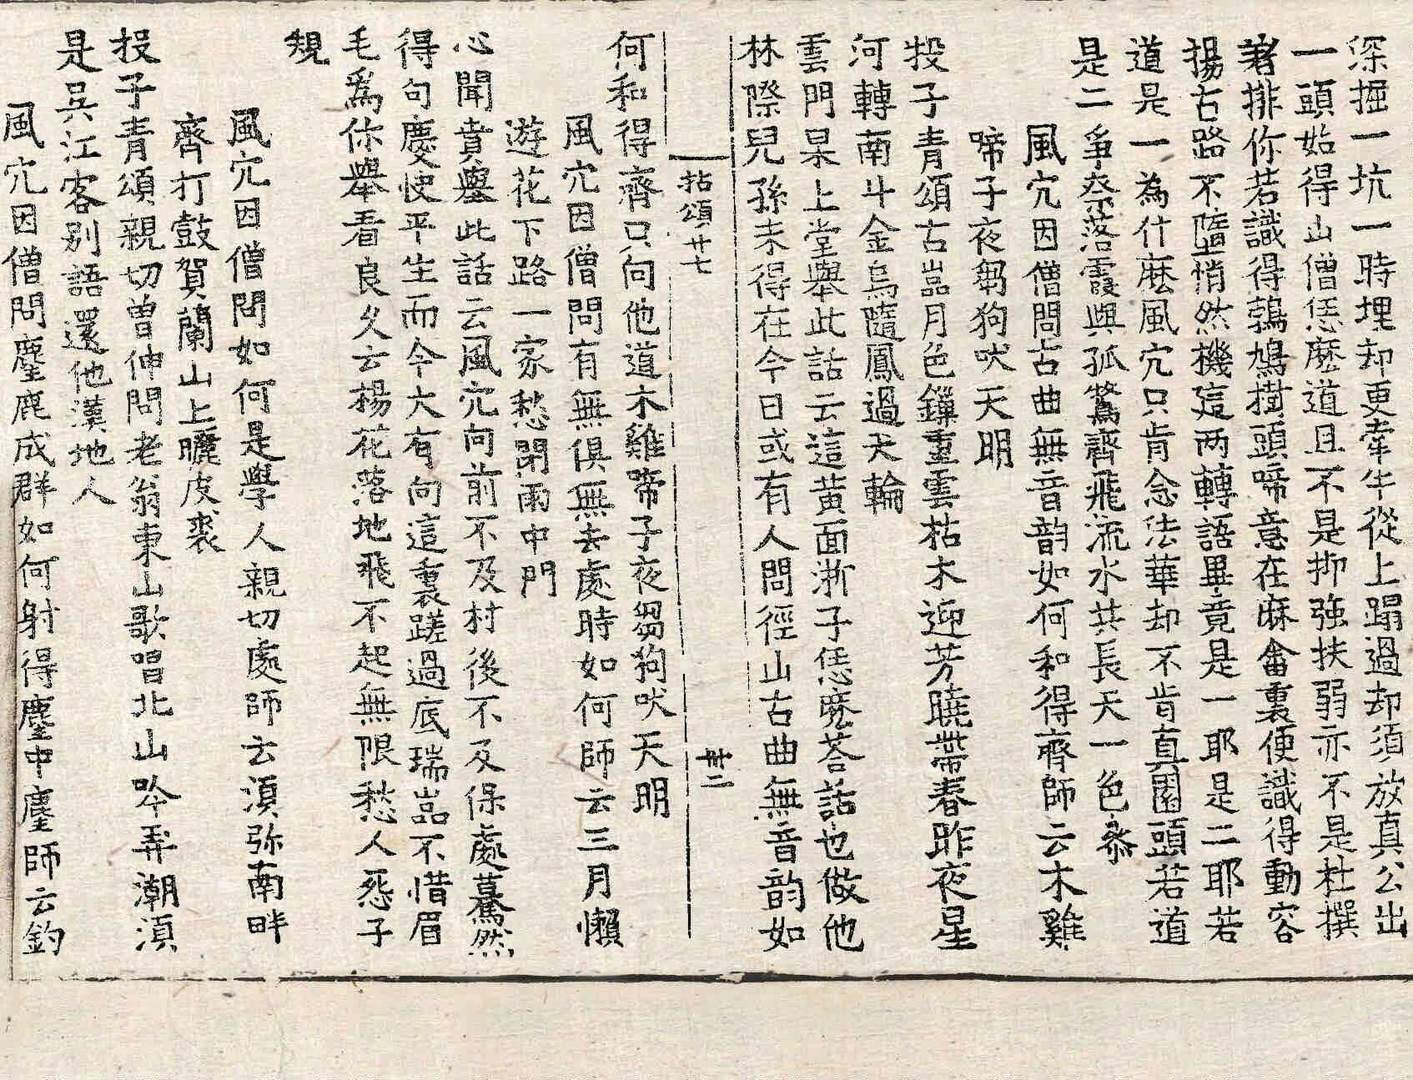 深掘一坑一時埋却更牽牛從上蹋過却須放真公出
一頭始得山僧恁麽道且不是抑強扶弱亦不是杜撰
著排你若識得鵓鳩樹頭啼意在麻畲裏便識得動容
揚古路不墮悄然機這两轉語畢竟是一耶是二耶若
道是一為什麽風穴只肯念法華却不肯真園頭若道
是二爭奈落霞與孤鶩齊飛流水共長天一色參
風穴因僧問古曲無音韵如何和得齊師云木雞
啼子夜芻狗吠天明
投子青頌古嵓月色鏁重雲枯木迎芳曉帶春昨夜星
河轉南斗金烏隨鳳過天輪
雲門杲上堂舉此話云這黄面浙子恁麽荅話也做他
林際兒孫未得在今日或有人問徑山古曲無音韵如
拈頌廿七
卅二
何和得齊只向他道木雞啼子夜芻狗吠天明
風穴因僧問有無俱無去處時如何師云三月懶
遊花下路一家愁閉雨中門
心聞賁舉此話云風穴向前不及村後不及保處驀然
得句慶快平生而今大有向這裏蹉過底瑞嵓不惜眉
毛爲你舉看良久云楊花落地飛不起無限愁人怨子
規
風穴因僧問如何是學人親切處師云湏弥南畔
齊打鼓賀蘭山上曬皮裘
投子青頌親切曽伸問老翁東山歌唱北山吟弄潮湏
是吳江客别語還他漢地人
風穴因僧問麈鹿成群如何射得麈中麈師云釣